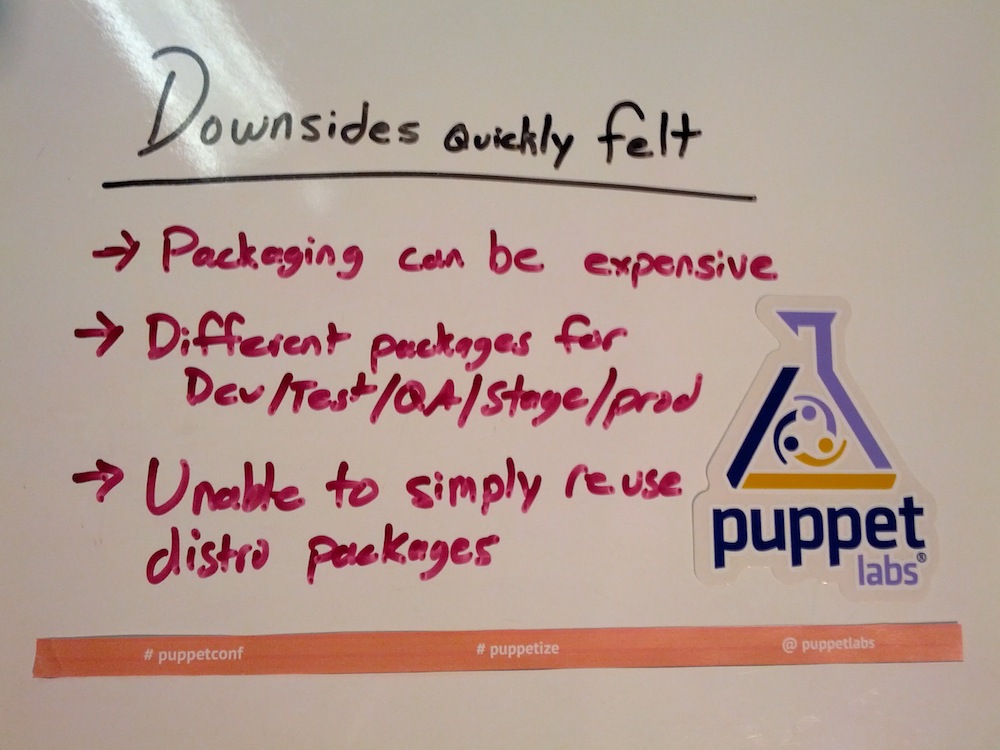 Downsides Quickly felt
→ Packaging can be expensive
→ Different packages for
Dev/Test/QA/Stage/prod
→ Unable to simply reuse
distro packages
puppet
labs®
# puppetconf # puppetize @ puppetlabs